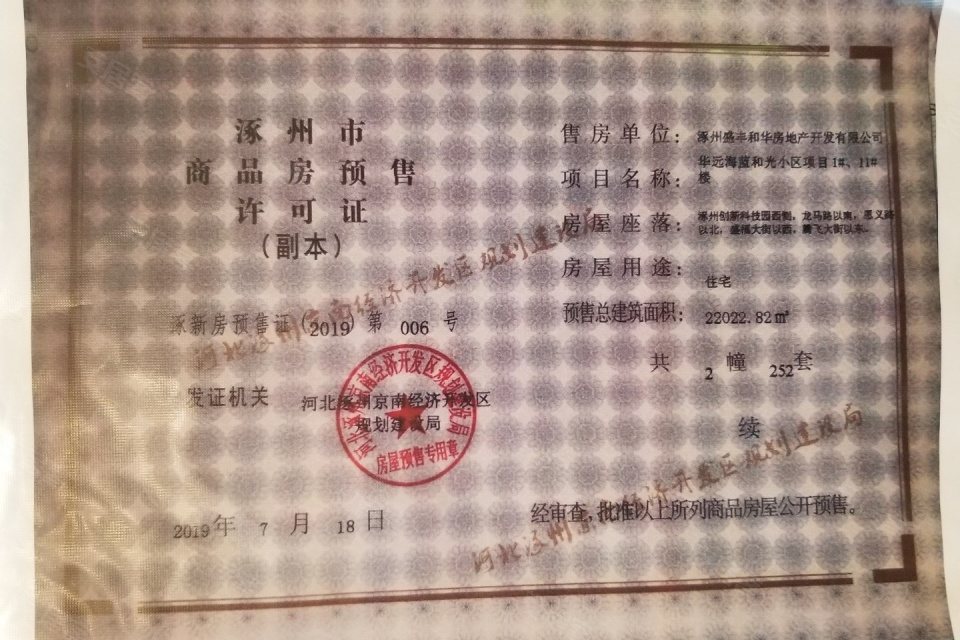 涿州市
商品房预售
许可证
(副本)
涿新房预售证(2019)第 006 号
发证机关 河北涿州京南经济开发区
规划建设局
2019年 7 月 18 日
售房单位: 涿州盛丰和华房地产开发有限公司
项目名称: 华远海蓝和光小区项目1#、11#
楼
房屋座落: 涿州创新科技园西侧,龙马路以南,思义路
以北,盛福大街以西,腾飞大街以东。
房屋用途: 住宅
预售总建筑面积: 22022.82㎡
共 2 幢 252 套
续
经审查,批准以上所列商品房屋公开预售。
河北涿州京南经济开发区规划建设局
房屋预售专用章
河北涿州京南经济开发区规划建设局
河北涿州京南经济开发区规划建设局